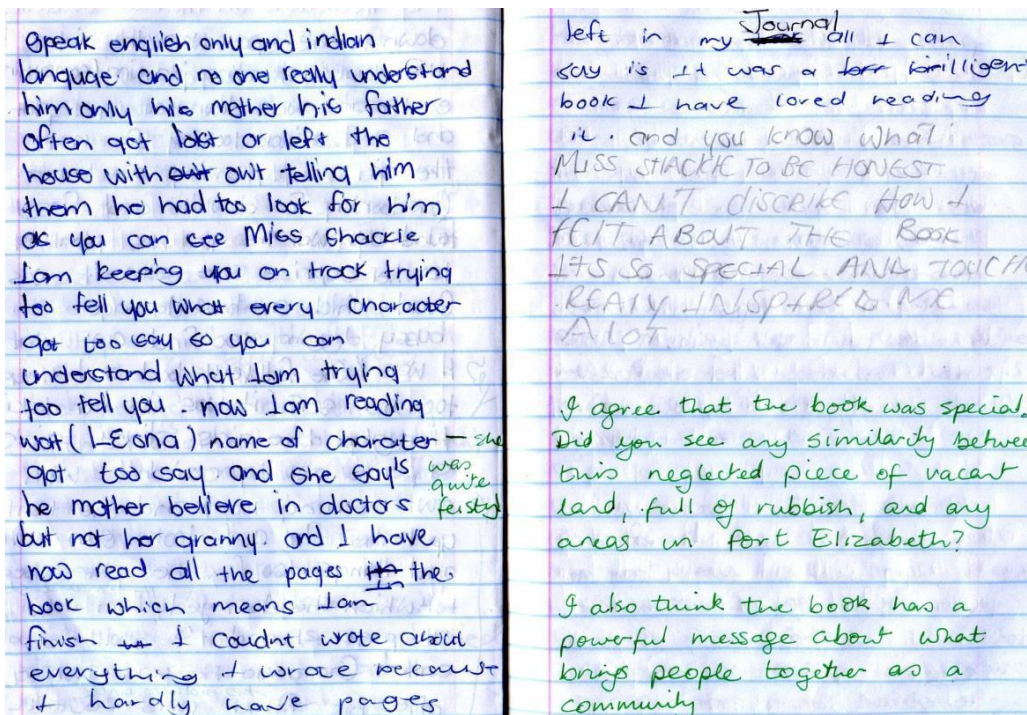 Speak english only and indian
languge and no one really understand
him only his mother his father
often got lost or left the
house with out owt telling him
them he had too look for him
as you can see Miss Shackie
Iam keeping you on track trying
too tell you what every character
got too say so you can
understand what Iam trying
too tell you. now Iam reading
wat (LEona) name of charater — she
got too say and she say's was
quite
he mother believe in doctors feisty!
but not her granny. and I have
now read all the pages in the
book which means Iam
finish I coudnt wrote about
everything I wrote because
I hardly have pages
left in my Journal all I can
say is It was a brilligen
book I have loved reading
it. and you know what!
MISS SHACKIE TO BE HONEST
I CAN'T DISCRIKE HOW I
FElT ABOUT THE BOOK
ITS SO SPECIAL AND TOUCH
REALY INSPIRED ME
A LOT.
I agree that the book was special.
Did you see any similarity betwee
this neglected piece of vacant
land, full of rubbish, and any
areas in Port Elizabeth?
I also think the book has a
powerful message about what
brings people together as a
community